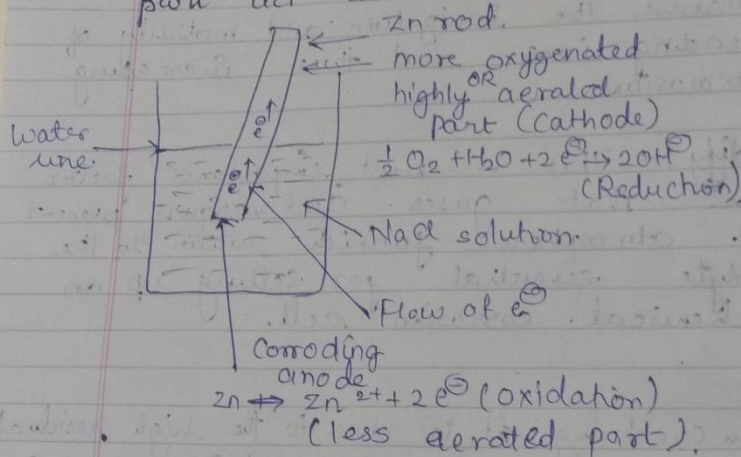 Zn rod.
more oxygenated
OR
highly aerated
part (cathode)
½ O2 + H2O + 2e⊖ → 2OH⊖
(Reduction)
water
line
e⊖
e⊖
NaCl solution.
Flow of e⊖
Corroding
anode
Zn ⇌ Zn2+ + 2e⊖ (oxidation)
(less aerated part).